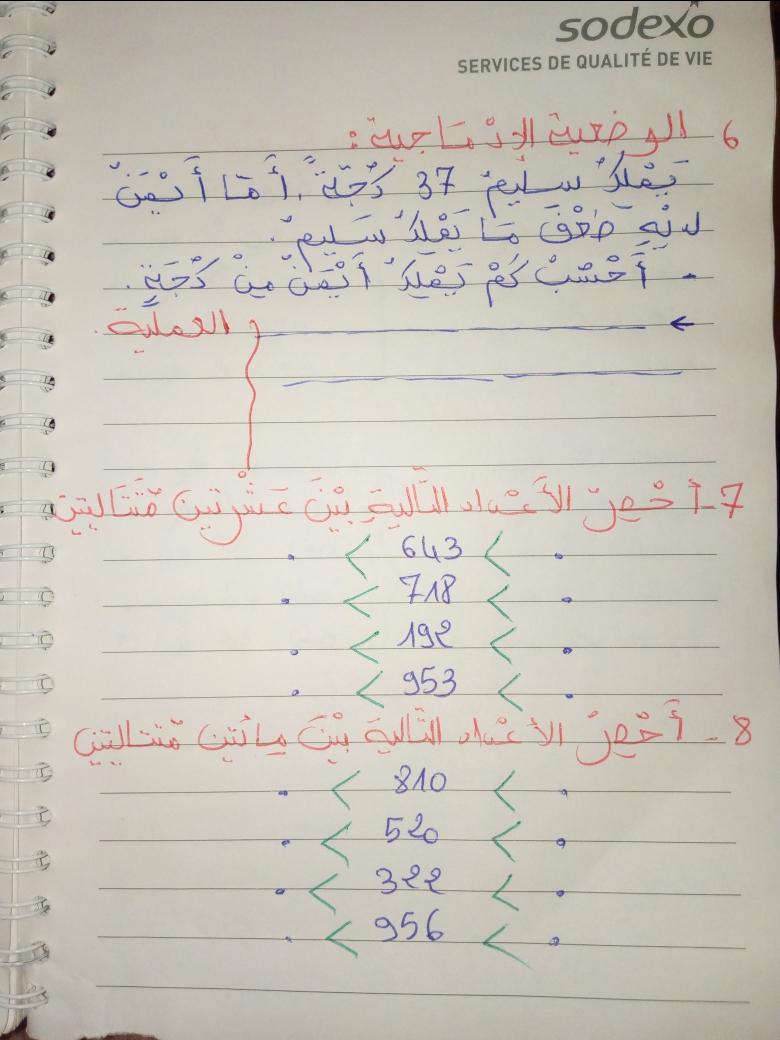 sodexo
SERVICES DE QUALITÉ DE VIE
6 الوضعية الإدْمَاجية:
يَمْلِكُ سليمُ 37 كُجّةً، أَمّا أَيْمَنْ
لديْهِ ضِعْفَ مَا يَمْلِكُ سَليمُ.
- أَحْسُبْ كَمْ يَمْلِكُ أَيْمَنْ مِنْ كُجّةٍ.
العملية.
7- أحْصِرْ الأَعْداد التّاليةِ بيْنَ عَشْرتين مُتَتاليتين
. < 643 < .
. < 718 < .
. < 192 < .
. < 953 < .
8- أَحْصِرْ الأعْداد التّالية بيْنَ مِائتين مُتتاليتين
. < 810 < .
. < 520 < .
. < 322 < .
. < 956 < .